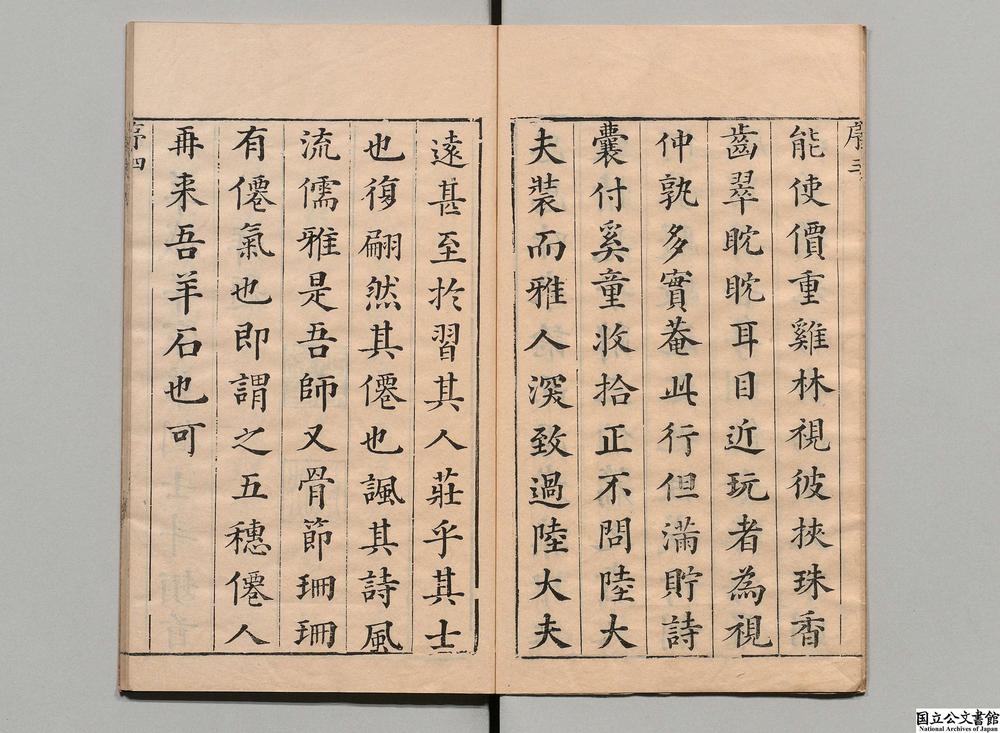 序三
能使價重雞林視彼挾珠香
齒翠眈眈耳目近玩者為視
仲孰多實菴此行但滿貯詩
囊付奚童收拾正不問陸大
夫裝而雅人深致過陸大夫
遠甚至於習其人莊乎其士
也復翩然其僊也諷其詩風
流儒雅是吾師又骨節珊珊
有僊氣也即謂之五穗僊人
再来吾羊石也可
序四
国立公文書館
National Archives of Japan